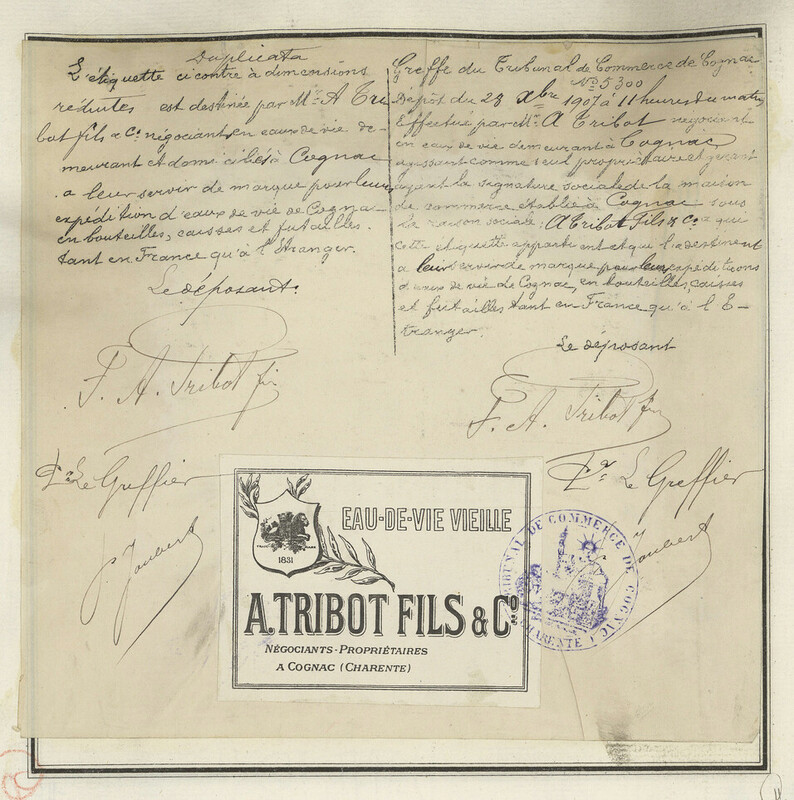 Duplicata
L'étiquette ci contre à dimensions
réduites est destinée par Mr. A Tri
bot fils & Co. négociants en eaux de vie de-
meurant et domiciliés à Cognac
a leur servir de marque pour leur
expédition d'eaux de vie de Cognac
en bouteilles, caisses et futailles.
tant en France qu'à l'étranger.
Le déposant.
F. A. Tribot fils
Pr. Le Greffier
Joubert
Greffe du Tribunal de Commerce de Cognac
No. 5300
Dépôt du 28 Xbre 1907 à 11 heures du matin
Effectué par Mr. A Tribot négociant
en eaux de vie demeurant à Cognac
agissant comme seul propriétaire et gérant
ayant la signature sociale de la maison
de commerce établie à Cognac sous
la raison sociale: A Tribot Fils & Co a qui
cette etiquette appartient et qui l'a destinent
a leur servir de marque pour leur expéditions
d'eaux de vie de Cognac, en bouteilles, caisses
et futailles tant en France qu'à l'E-
tranger.
Le déposant
F. A. Tribot fils
Pr. Le Greffier
Joubert
1831
EAU-DE-VIE VIEILLE
A. TRIBOT FILS & Co.
NÉGOCIANTS-PROPRIÉTAIRES
A COGNAC (CHARENTE)
TRIBUNAL DE COMMERCE DE COGNAC
(CHARENTE)